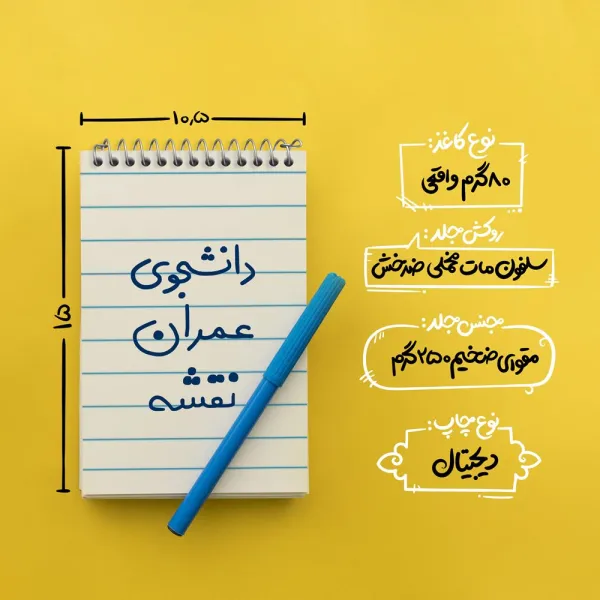 ۱۰,۵
۱۵
دانشجوی
عمران
نقشه
نوع کاغذ:
۸۰گرم واقعی
روکش مجلد:
سلفون مات مخملی ضدخش
جنس مجلد:
مقوای ضخیم ۲۵۰گرم
نوع چاپ:
دیجیتال